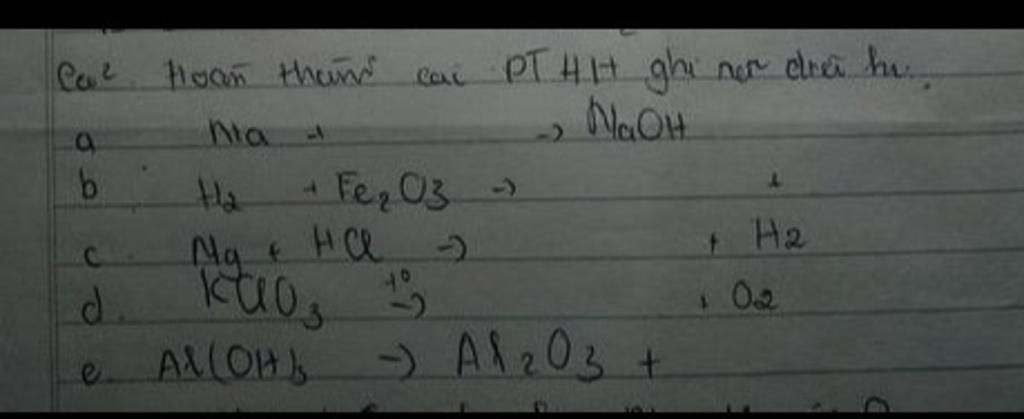 Hoàn thành các PTHH ghi
a Na + -> NaOH
b H2 + Fe2O3 -> +
c Mg + HCl -> + H2
d. KClO3 t° -> + O2
e Al(OH)3 -> Al2O3 +